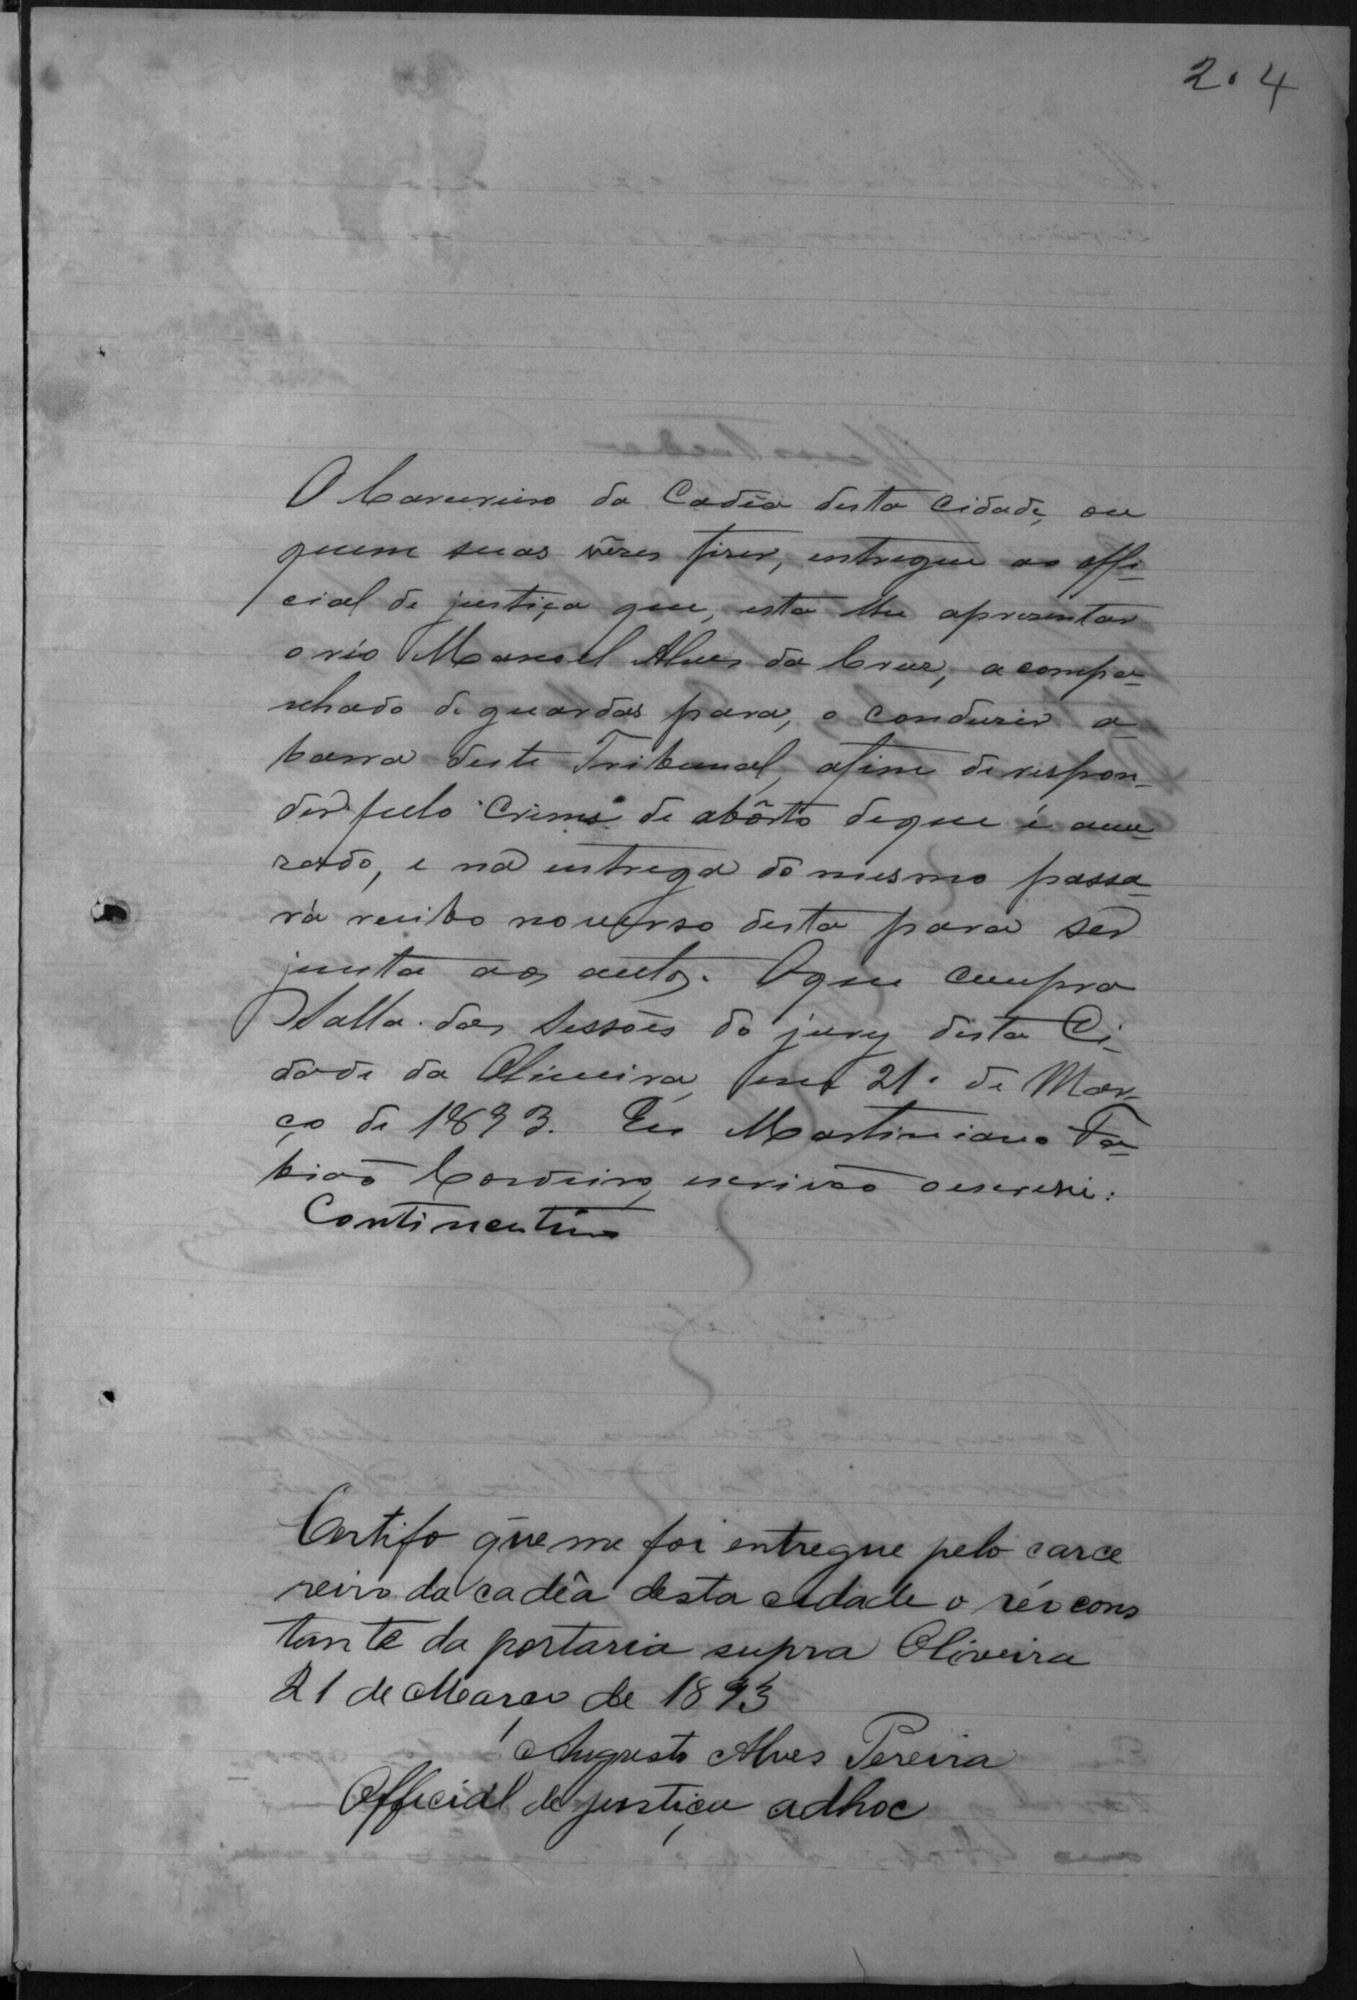 2.4
O Carcereiro da Cadêa desta Cidade, ou
quem suas vêzes fizer, entregue ao offi-
cial de justiça que, esta lhe aprezentar
o réo Manoel Alves da Cruz, acompa-
nhado de guardas para, o conduzir a
barra deste Tribunal, afim de respon-
der pelo crime de abôrto de que é acu-
zado, e na entrega do mesmo passa-
rá recibo no verso desta para ser
junta aos autos. O que cumpra
Salla das Sessões do jury desta Ci-
dade da Oliveira, em 21. de Mar-
ço de 1893. Eu Martiniano Fa-
bião Cordeiro, escrivão o escrevi.
Continentino
Certifo que me foi entregue pelo carce
reiro da cadêa desta cidade o réo cons
tante da portaria supra Oliveira
21 de Março de 1893
Augusto Alves Pereira
Official de justiça adhoc